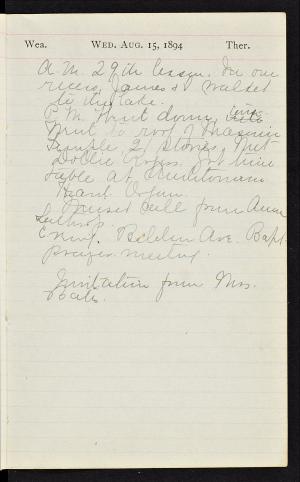 Wea. WED. AUG. 15, 1894 Ther.
A.M. 29th lesson. In our
recess, James & I walked
to the lake.
P.M. Went down,
Went to roof of Masonic
Temple, 21 stories, Met
Dollie Rogers. Got time
table at Auditorium
Heard Organ.
Missed call from Anna
Lathrop.
Evng. Belden Ave. Bapt.
prayer meeting.
Invitation from Mrs.
Bates.